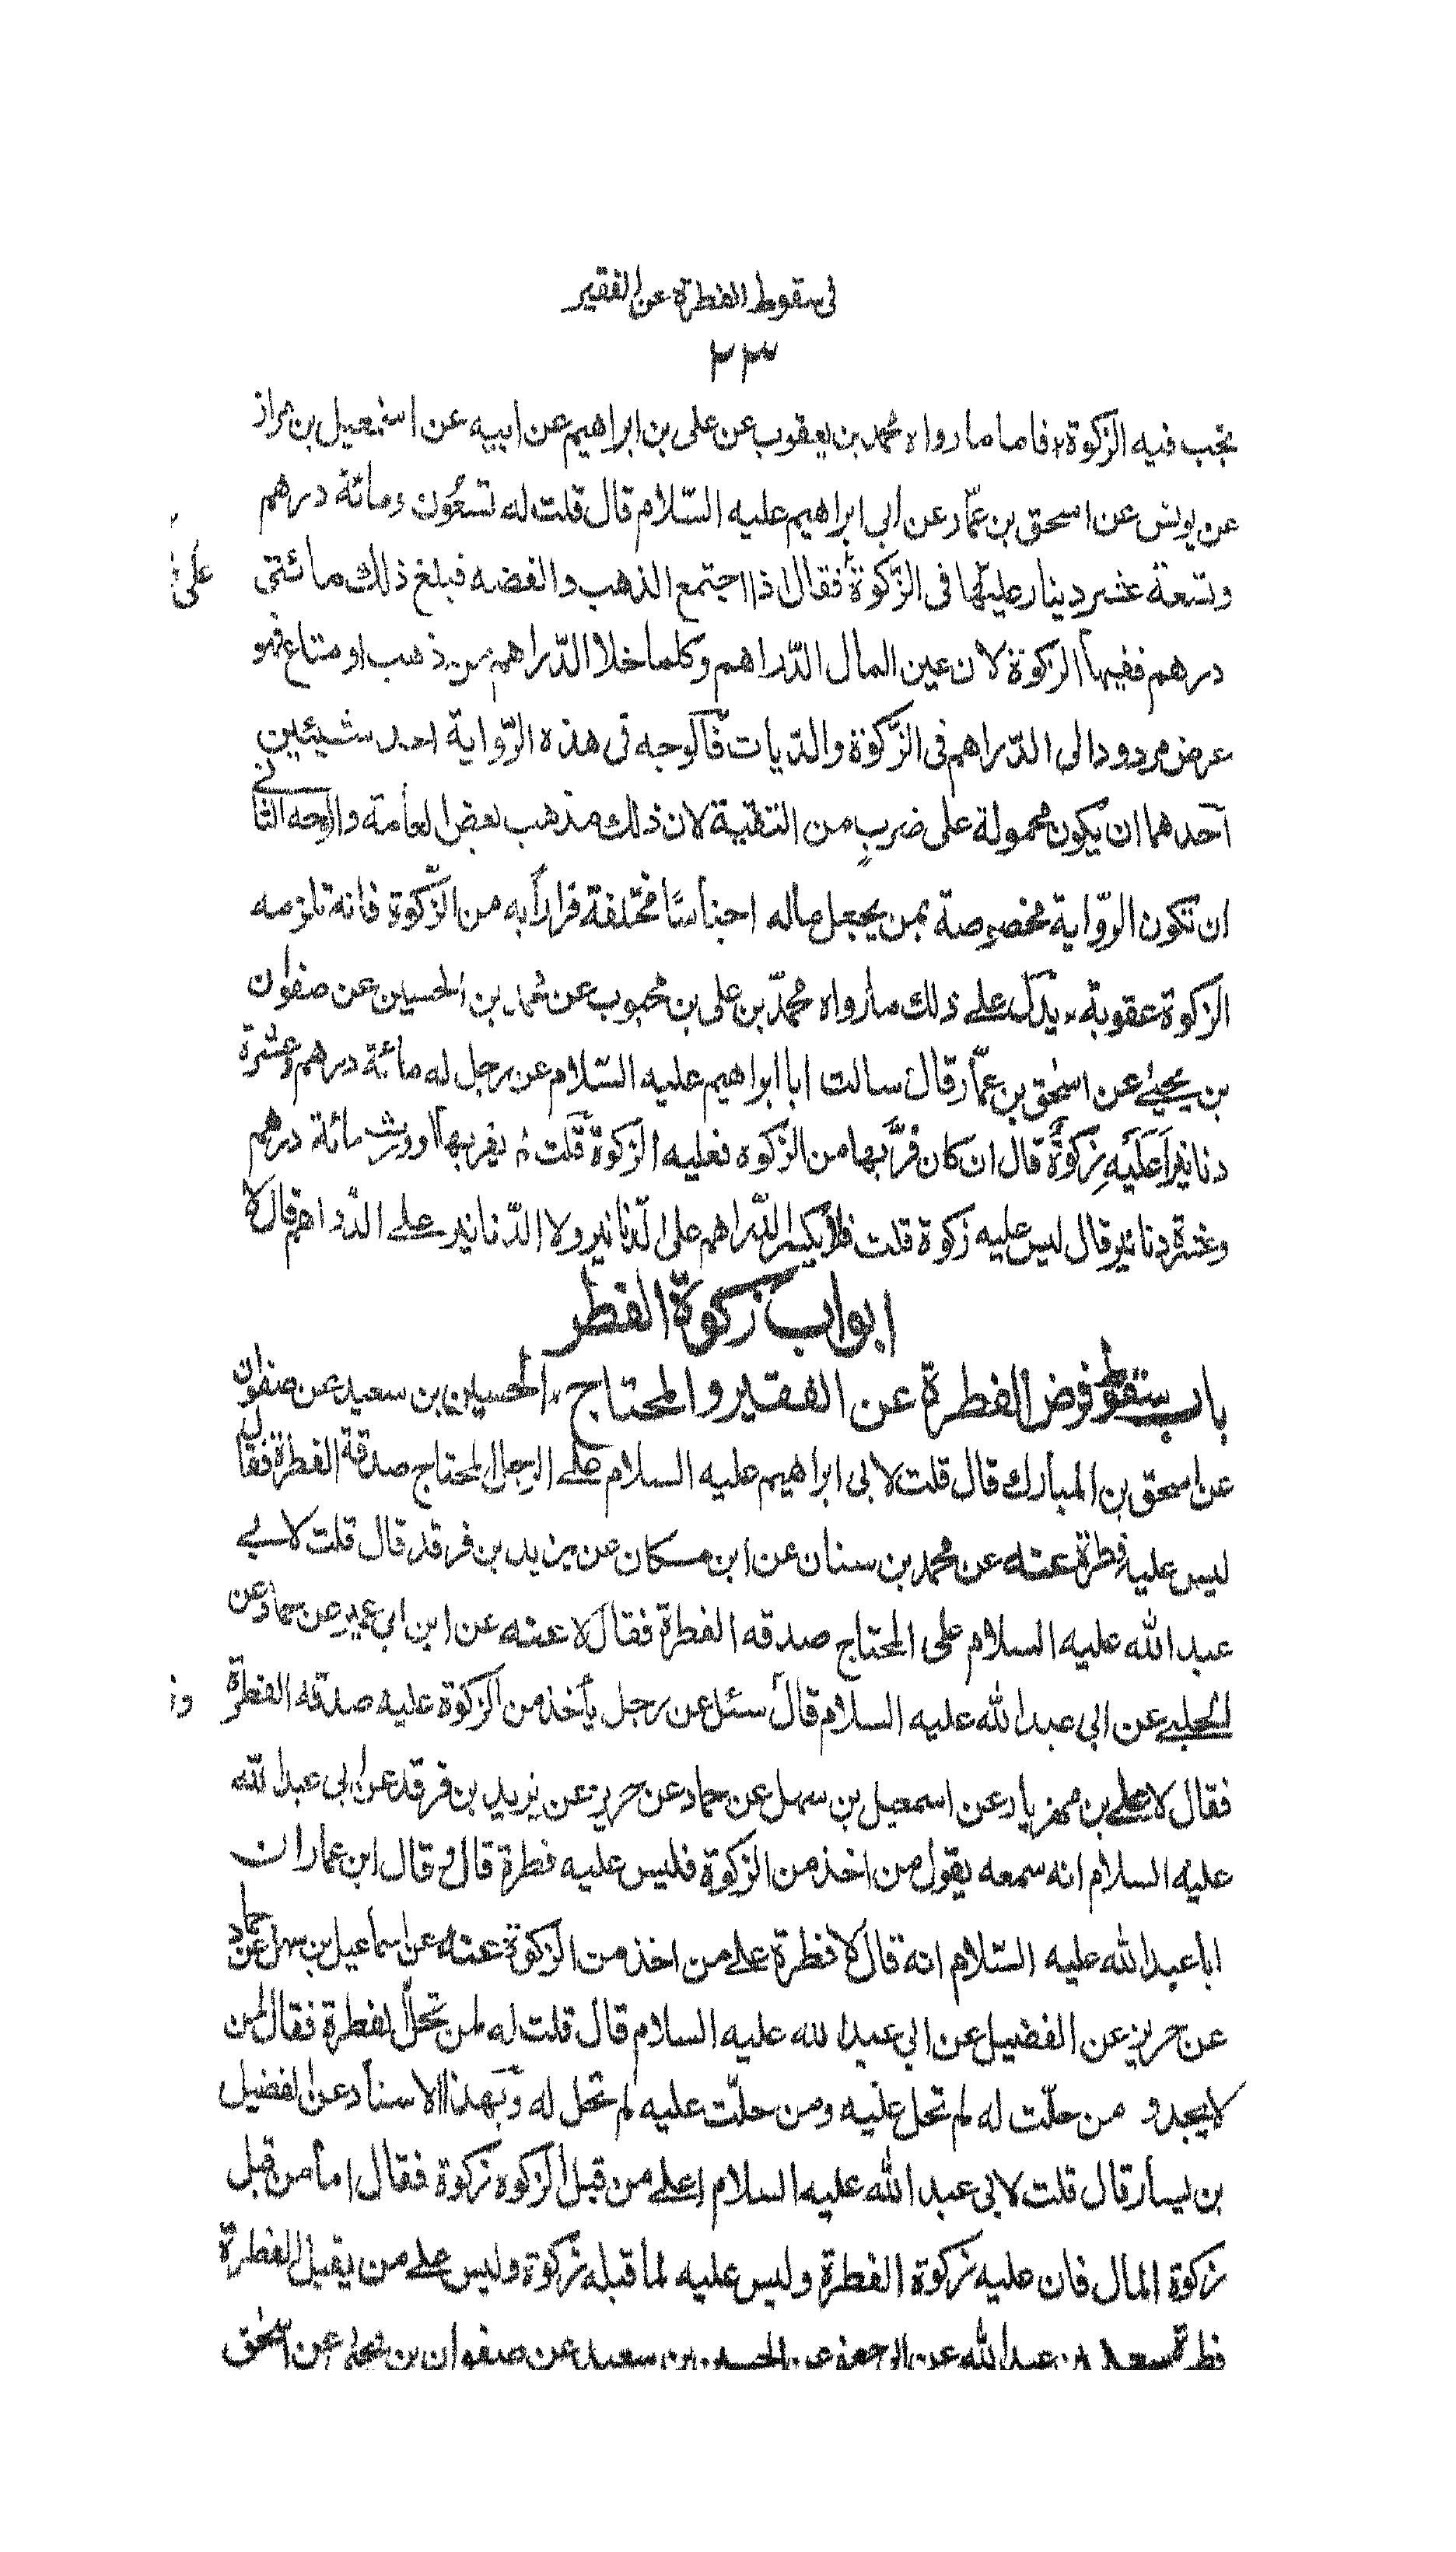 فى سقوط الفطرة عن الفقير
٢٣
تجب فيه الزكوة فاما ما رواه محمد بن يعقوب عن على بن ابراهيم عن ابيه عن اسمعيل بن مرار
عن يونس عن اسحق بن عمّار عن ابى ابراهيم عليه السّلام قال قلت له تسعُون ومائة درهم
وتسعة عشر دينار عليها فى الزّكوة فقال اذا اجتمع الذهب والفضه فبلغ ذلك مائتى
درهم ففيها الزكوة لان عين المال الدّراهم وكلما خلا الدّراهم من ذهب او متاع فهو
عرض مردود الى الدّراهم فى الزّكوة والديات فالوجه فى هذه الرّواية احد شيئين
احدهما ان يكون محمولة على ضربٍ من التقية لان ذلك مذهب بعض العامة والوجه الثانى
ان تكون الرّواية مخصوصة بمن يجعل ماله اجناسًا مختلفة فرارا به من الزّكوة فانه تلزمه
الزكوة عقوبة يدل على ذلك ما رواه محمّد بن على بن محبوب عن محمد بن الحسين عن صفوان
بن يحيى عن اسحق بن عمّار قال سالت ابا ابراهيم عليه السّلام عن رجل له مائة درهم وعشرة
دنانير أعليه زكوة قال ان كان فرّ بها من الزكوه فعليه الزكوة قلت لم يفر بها ورث مائة درهم
وعشرة دنانير قال ليس عليه زكوة قلت فلا يكسر الدّراهم على الدّنانير ولا الدّنانير على الدّراهم قال لا
ابواب زكوة الفطر
باب سقوط فرض الفطرة عن الفقير والمحتاج الحسين بن سعيد عن صفوان
عن اسحق بن المبارك قال قلت لابى ابراهيم عليه السلام على الرجل المحتاج صدقة الفطرة فقال
ليس عليه فطرة عنه عن محمد بن سنان عن ابن مسكان عن يزيد بن فرقد قال قلت لابى
عبد الله عليه السلام على المحتاج صدقه الفطرة فقال لا عنه عن ابن ابى عمير عن حماد عن
الحلبى عن ابى عبد الله عليه السلام قال سئل عن رجل يأخذ من الزكوة عليه صدقه الفطرة
فقال لا على بن مهزيار عن اسمعيل بن سهل عن حماد عن حريز عن يزيد بن فرقد عن ابى عبد الله
عليه السلام انه سمعه يقول من اخذ من الزكوة فليس عليه فطرة قال وقال ابن عمار ان
ابا عبد الله عليه السّلام انه قال لا فطرة على من اخذ من الزكوة عنه عن اسماعيل بن سهل عن حماد
عن حريز عن الفضيل عن ابى عبد الله عليه السلام قال قلت له لمن تحل الفطرة فقال لمن
لا يجد و من حلّت له لم تحل عليه ومن حلّت عليه لم تحل له وبهذا الاسناد عن الفضيل
بن يسار قال قلت لابى عبد الله عليه السلام اعلى من قبل الزكوه زكوة فقال اما من قبل
زكوة المال فان عليه زكوة الفطرة وليس عليه لما قبله زكوة وليس على من يقبل الفطرة
فطرة سعد بن عبد الله عن ابى جعفر عن الحسين بن سعيد عن صفوان بن يحيى عن اسحق
على